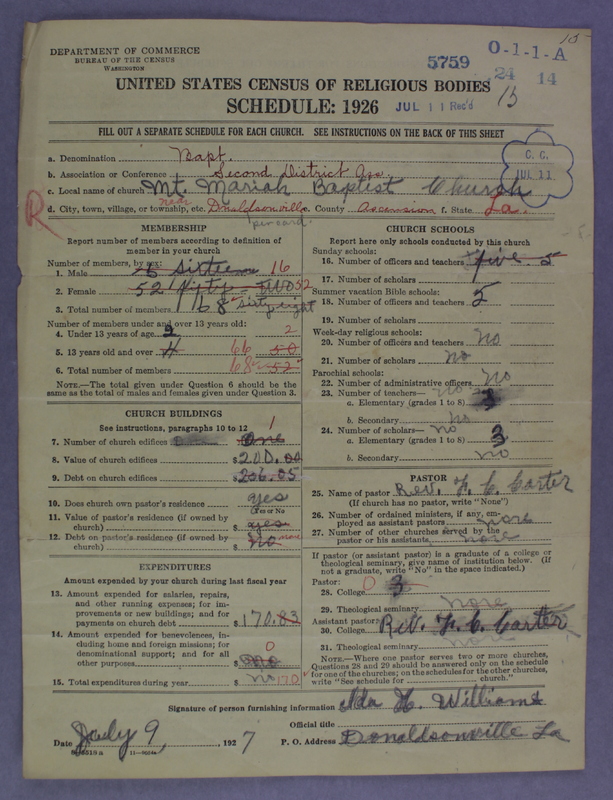 DEPARTMENT OF COMMERCE
BUREAU OF THE CENSUS
WASHINGTON
5759
O-1-1-A
24 14
15
UNITED STATES CENSUS OF RELIGIOUS BODIES
SCHEDULE: 1926
JUL 11 Rec'd
15
FILL OUT A SEPARATE SCHEDULE FOR EACH CHURCH. SEE INSTRUCTIONS ON THE BACK OF THIS SHEET
C. C.
JUL 11
a. Denomination Bapt.
b. Association or Conference Second District Ass.
c. Local name of church Mt. Mariah Baptist Church
R
d. City, town, village, or township, etc. near Donaldsonville County Ascension f. State La.
per card
MEMBERSHIP
Report number of members according to definition of
member in your church
Number of members, by sex:
1. Male 16 sixteen 16
2. Female 52 fifty two 52
3. Total number of members 68 sixty eight
Number of members under and over 13 years old:
4. Under 13 years of age 2 2
5. 13 years old and over 4 66 50
6. Total number of members 68 52
NOTE.—The total given under Question 6 should be the
same as the total of males and females given under Question 3.
CHURCH BUILDINGS
See instructions, paragraphs 10 to 12
7. Number of church edifices one 1
8. Value of church edifices $200.00
9. Debt on church edifices $206.05
10. Does church own pastor's residence yes
(Yes or No
11. Value of pastor's residence (if owned by
church) $ yes
12. Debt on pastor's residence (if owned by
church) $ no
EXPENDITURES
Amount expended by your church during last fiscal year
13. Amount expended for salaries, repairs,
and other running expenses; for im-
provements or new buildings; and for
payments on church debt $170.83
14. Amount expended for benevolences, in-
cluding home and foreign missions; for
denominational support; and for all
other purposes $ no 0
15. Total expenditures during year $ no 170
CHURCH SCHOOLS
Report here only schools conducted by this church
Sunday schools:
16. Number of officers and teachers five 5
17. Number of scholars
Summer vacation Bible schools:
18. Number of officers and teachers 5
19. Number of scholars
Week-day religious schools:
20. Number of officers and teachers no
21. Number of scholars no
Parochial schools:
22. Number of administrative officers no
23. Number of teachers— no
a. Elementary (grades 1 to 8) 3
b. Secondary no
24. Number of scholars— no
a. Elementary (grades 1 to 8) 3
b. Secondary no
PASTOR
25. Name of pastor Rev. F. C. Carter
(If church has no pastor, write "None")
26. Number of ordained ministers, if any, em-
ployed as assistant pastors none
27. Number of other churches served by the
pastor or his assistants none
If pastor (or assistant pastor) is a graduate of a college or
theological seminary, give name of institution below. (If
not a graduate, write "No" in the space indicated.)
Pastor:
28. College 0 3
29. Theological seminary none
Assistant pastor:
30. College Rev. F. C. Carter
31. Theological seminary none
NOTE.—Where one pastor serves two or more churches,
Questions 28 and 29 should be answered only on the schedule
for one of the churches; on the schedules for the other churches,
write "See schedule for church."
Signature of person furnishing information Ida H. Williams
Official title
Date July 9, 1927 P. O. Address Donaldsonville La